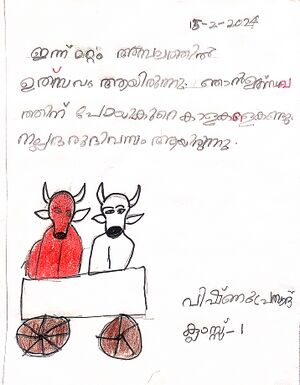 15-2-2024
ഇന്ന് മറ്റം അമ്പലത്തിൽ
ഉത്സവം ആയിരുന്നു. ഞാൻ ഉത്സവ
ത്തിന് പോയകുറെ കാളകളെകണ്ടു.
നല്ലഒരുദിവസം ആയിരുന്നു.
ക്ലാസ്സ്-1